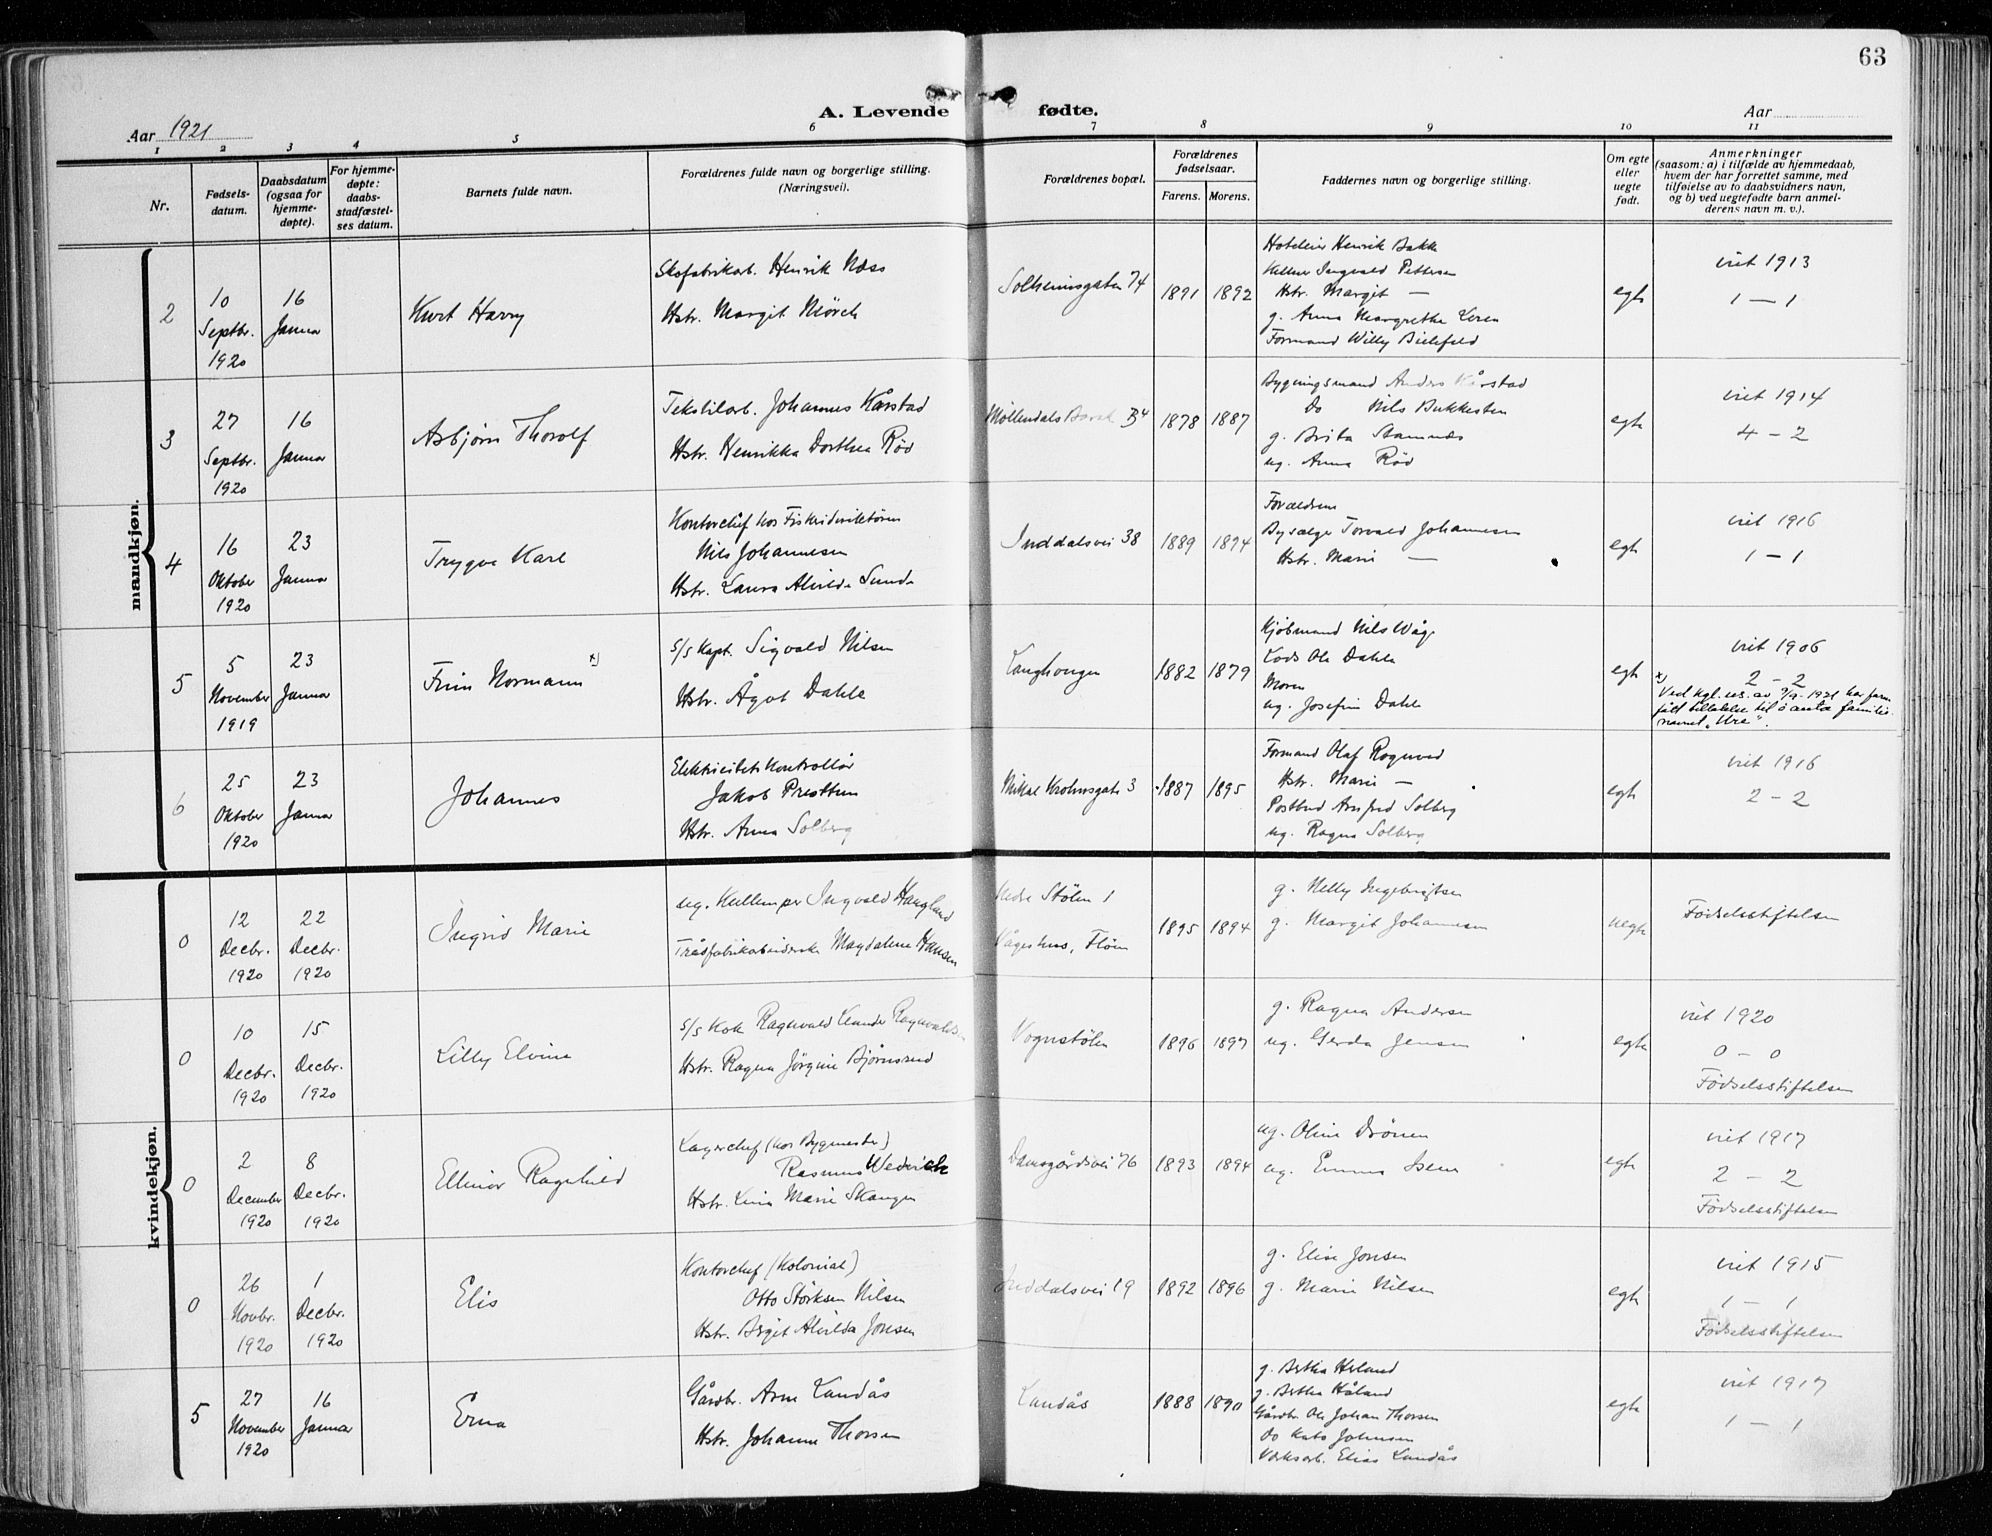 63
A. Levende fødte.
Aar 1921
Aar
1 2 3 4 5 6 7 8 9 10 11
Nr.
Fødsels-
datum.
Daabsdatum
(ogsaa for
hjemme-
døpte).
For hjemme-
døpte:
daabs-
stadfæstel-
ses datum.
Barnets fulde navn.
Forældrenes fulde navn og borgerlige stilling.
(Næringsvei).
Forældrenes bopæl.
Forældrenes
fødselsaar.
Farens. Morens.
Faddernes navn og borgerlige stilling.
Om egte
eller
uegte
født.
Anmerkninger
(saasom: a) i tilfælde av hjemmedaab,
hvem der har forrettet samme, med
tilføielse av to daabsvidners navn,
og b) ved uegtefødte barn anmel-
derens navn m. v.).
mandkjøn.
2
10
Septbr.
1920
16
Januar
Kurt Harry
Skofabrikarb. Henrik Næss
Hstr. Margit Mörch
Solheimsgaten 74
1891 1892
Hotelier Henrik Bakke
Kellner Ingvald Pettersen
Hstr. Margit —
g. Anna Margrethe Leren
Formand Willy Bielefeld
egte
viet 1913
1 — 1
3
27
Septbr.
1920
16
Januar
Asbjørn Thorolf
Tekstilarb. Johannes Kårstad
Hstr. Henrikka Dorthea Röd
Möllendals Barak B4
1878 1887
Bygningsmand Anders Kårstad
Do Nils Bukkesten
g. Brita Stamnæs
ug. Anna Röd
egte
viet 1914
4 - 2
4
16
Oktober
1920
23
Januar
Trygve Karl
Kontorchef hos Fiskeridirektören
Nils Johannesen
Hstr. Laura Alvilde Sunde
Inddalsvei 38
1889 1894
Forældrene
Bysælger Torvald Johannesen
Hstr. Marie —
egte
viet 1916
1 - 1
5
5
November
1919
23
Januar
Finn Normann x)
S/S Kapt. Sigvald Nilsen
Hstr. Ågot Dahle
Langhaugen
1882 1879
Kjöbmand Nils Våge
Lods Ole Dahle
Moren
ug. Josefine Dahle
egte
viet 1906
2 - 2
x) Ved kgl. res. av 9/9-1921 har faren
fått tillatelse til å anta familie-
navnet „Ure".
6
25
Oktober
1920
23
Januar
Johannes
Elektricitetskontrollör
Jakob Presttun
Hstr. Anna Solberg
Mikal Krohnsgate 3
1887 1895
Formand Olaf Rognved
Hstr. Marie —
Postbud Arnfred Solberg
ug. Ragna Solberg
egte
viet 1916
2 - 2
kvindekjøn.
0
12
Decbr.
1920
22
Decbr.
1920
Ingrid Marie
ug. Kullemper Ingvald Haugland
Trådfabrikarbeiderske Magdalene Hansen
Indre Stölen 1
Vågeshus, Flöen
1895 1894
g. Nelly Ingebrigtsen
g. Margit Johannesen
uegte
Födselsstiftelsen
0
10
Decbr.
1920
15
Decbr.
1920
Lilly Elvine
S/S Kok Ragnvald Leander Ragnvalds
Hstr. Ragna Jörgine Björnsrud
Vognstölen
1896 1897
g. Ragna Andersen
ug. Gerda Jensen
egte
viet 1920
0 - 0
Födselsstiftelsen
0
2
December
1920
8
Decbr.
1920
Ellinor Ragnhild
Lagerchef (hos Bygmester)
Rasmus Wedvich
Hstr. Lina Marie Skaugen
Damsgårdsvei 76
1893 1894
ug. Oline Drönen
ug. Emma Isene
egte
viet 1917
2 - 2
Födselsstiftelsen
0
26
Novbr.
1920
1
Decbr.
1920
Elis
Kontorchef (Kolonial)
Otto Störksen Nilsen
Hstr. Birgit Alvilda Jonsen
Inddalsvei 19
1892 1896
g. Elise Jonsen
g. Marie Nilsen
egte
viet 1915
1 - 1
Födselsstiftelsen
5
27
November
1920
16
Januar
Erna
Gårdbr. Arne Landås
Hstr. Johanne Thorsen
Landås
1888 1890
g. Bertha Heland
g. Bertha Håland
Gårdbr. Ole Johan Thorsen
Do Kato Johnsen
Værksarb. Elias Landås
egte
viet 1917
1 - 1